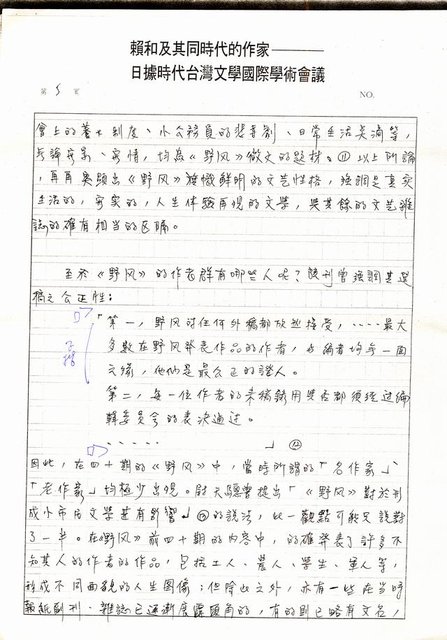 賴和及其同時代的作家———
日據時代台灣文學國際學術會議
第 5 頁 NO.
會上的養士制度、小公務員的悲喜劇、日常生活美滿等,
無論客、客情,均為《野风》徵文的題材。⑪以上所論
,再再突顯出《野风》旗幟鮮明的文艺性格,強調是真实
生活的,客实的,人生体驗再現的文學,與其餘的文艺雜
誌的確有相当的区隔。
至於《野风》的作者群有哪些人呢?該刊曾強調其選
稿之公正性:
「第一,野风对任何外稿都放胆接受,‥‥最大
多數在野风發表作品的作者,与編者均無一面
之緣,他們是最公正的證人。
第二,每一位作者的来稿錄用與否都須経过編
輯委员會的表決通过。
‥‥‥」⑫
因此,在四十期的《野风》中,當時所謂的「名作家」、
「老作家」均極少出現。尉天驄曾提出「《野风》對於形
成小市民文學甚有影響」⑬的說法,此一觀點可能只說對
了一半。在《野风》前四十期的內容中,的確發表了許多不
知其人的作者的作品,包括工人、農人、學生、軍人等,
形成不同面貌的人生图像;但除此之外,亦有一些在当時
報紙副刊、雜誌已逐漸展露頭角的,有的則已略有文名,